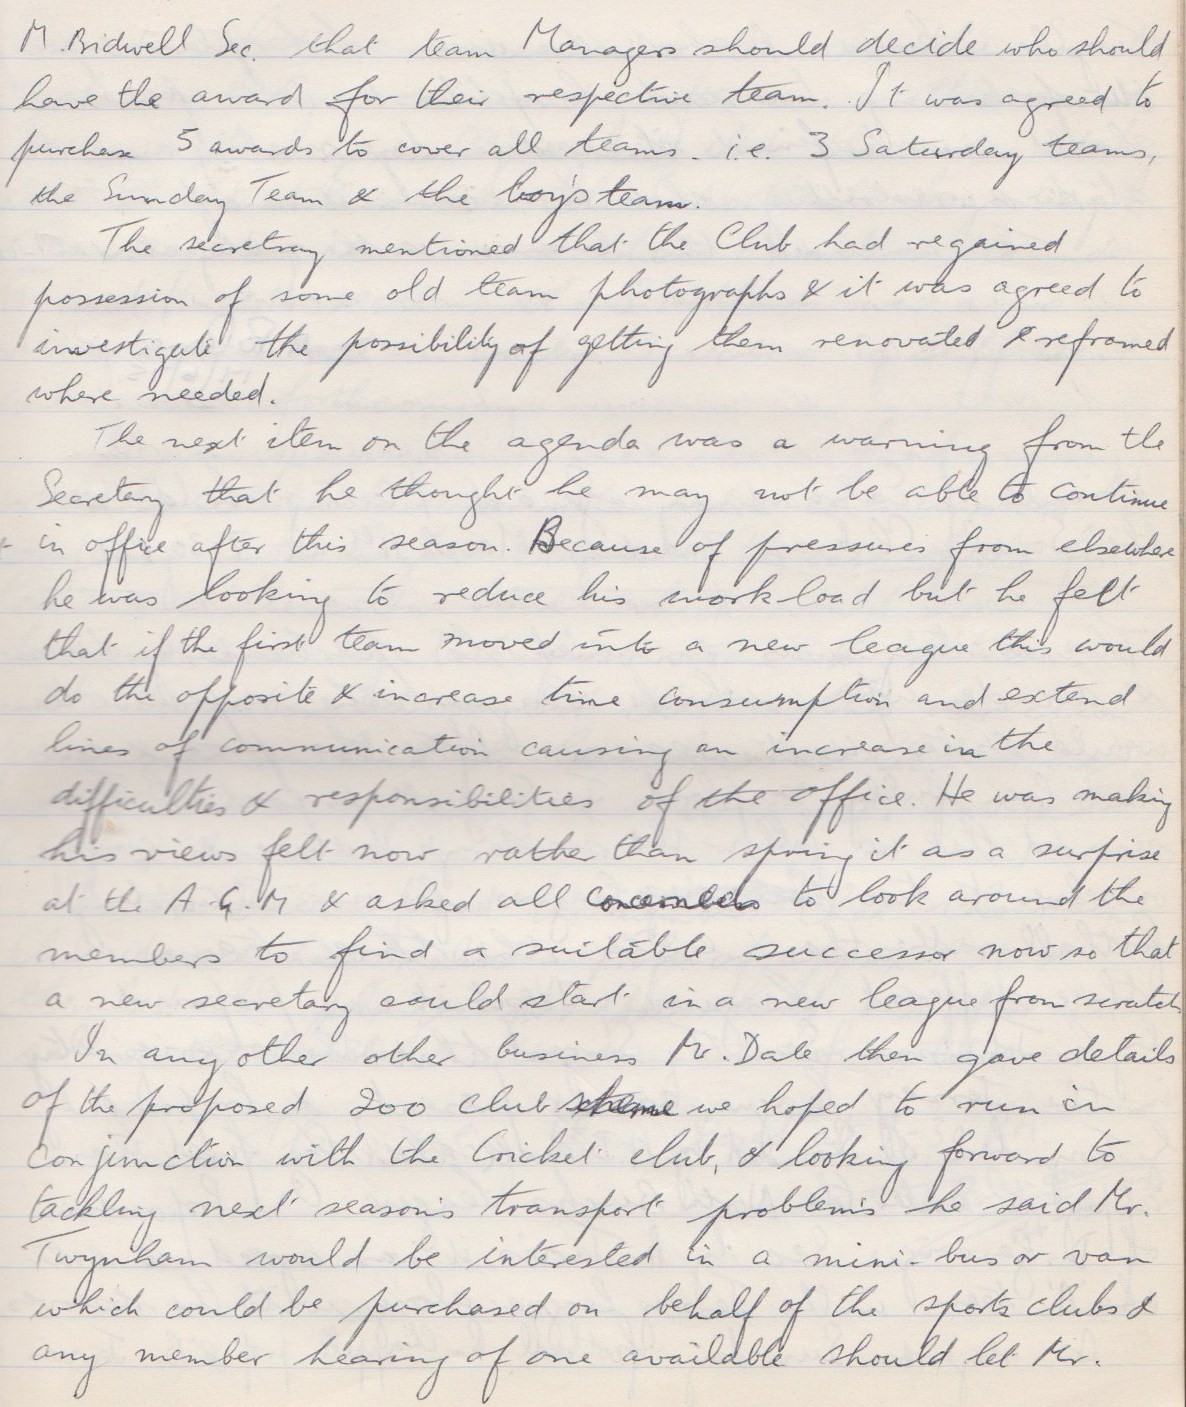 M. Bidwell Sec. that team Managers should decide who should
have the award for their respective team. It was agreed to
purchase 5 awards to cover all teams. i.e. 3 Saturday teams,
the Sunday Team & the boy's team.
The secretray mentioned that the Club had regained
possession of some old team photographs & it was agreed to
investigate the possibility of getting them renovated & reframed
where needed.
The next item on the agenda was a warning from the
Secretary that he thought he may not be able to continue
in office after this season. Because of pressures from elsewhere
he was looking to reduce his work-load but he felt
that if the first team moved into a new league this would
do the opposite & increase time consumption and extend
lines of communication causing an increase in the
difficulties & responsibilities of the office. He was making
his views felt now rather than spring it as a surprise
at the A.G.M & asked all to look around the
members to find a suitable successor now so that
a new secretary could start in a new league from scratch
In any other other business Mr. Dale then gave details
of the proposed 200 club scheme we hoped to run in
conjunction with the Cricket club, & looking forward to
tackling next season's transport problems he said Mr.
Twynham would be interested in a mini-bus or van
which could be purchased on behalf of the sports clubs &
any member hearing of one available should let Mr.